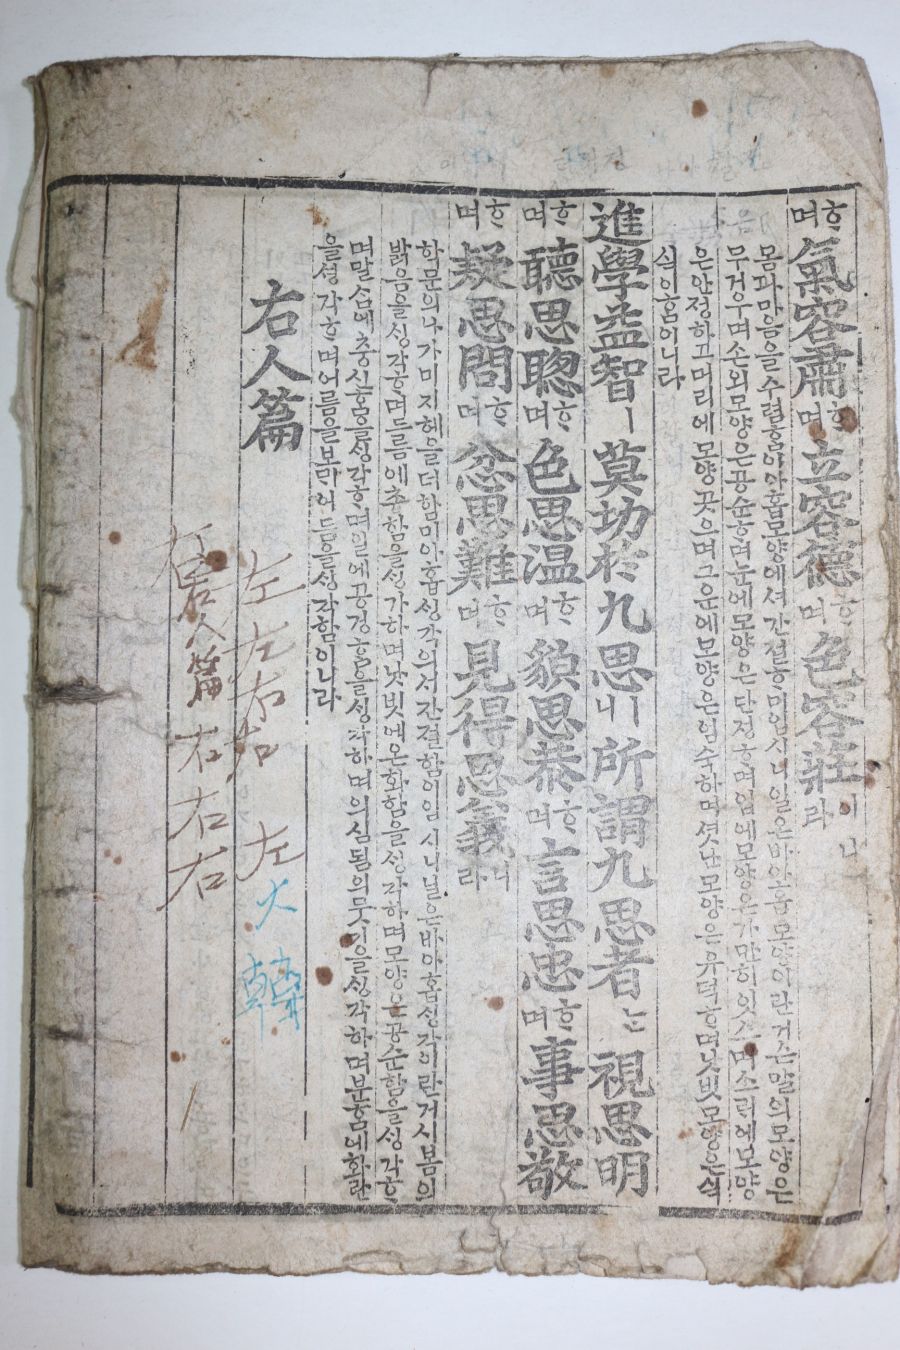 ᄒᆞ며氣容肅ᄒᆞ며立容德ᄒᆞ며色容莊이니라
몸과마음을수렴홈이아홉모양에셔간졀홈미업시니일은바아홉모양이란거슨말의모양은
무거우며손의모양은공슌ᄒᆞ며눈에모양은단졍ᄒᆞ며입에모양은가만히잇스며소리에모양
은안졍하고머리에모양곳으며긔운에모양은엄슉하며셧난모양은유덕ᄒᆞ며낫빗모양은식
식이홈이니라
進學益智ㅣ莫切於九思니所謂九思者ᄂᆞᆫ視思明
ᄒᆞ며聽思聰ᄒᆞ며色思温ᄒᆞ며貌思恭ᄒᆞ며言思忠ᄒᆞ며事思敬
ᄒᆞ며疑思問ᄒᆞ며忿思難ᄒᆞ며見得思義니라
학문의나가미지혜을더함미아홉셩각의셔간졀함이업시니닐은바아홉셩각이란거시봄의
밝음을싱각ᄒᆞ며드름에총함을셩가하며낫빗에온화함을셩각하며모양은공슌함을싱각ᄒᆞ
며말삼에츙신홈을셩각ᄒᆞ며일에공경홈을싱각하며의심됨의뭇기을싱각하며분홈에화란
을셩각ᄒᆞ며어름을보미어듬을싱각함이니라
右人篇
左左右右 左 大韓
右人篇 右右右